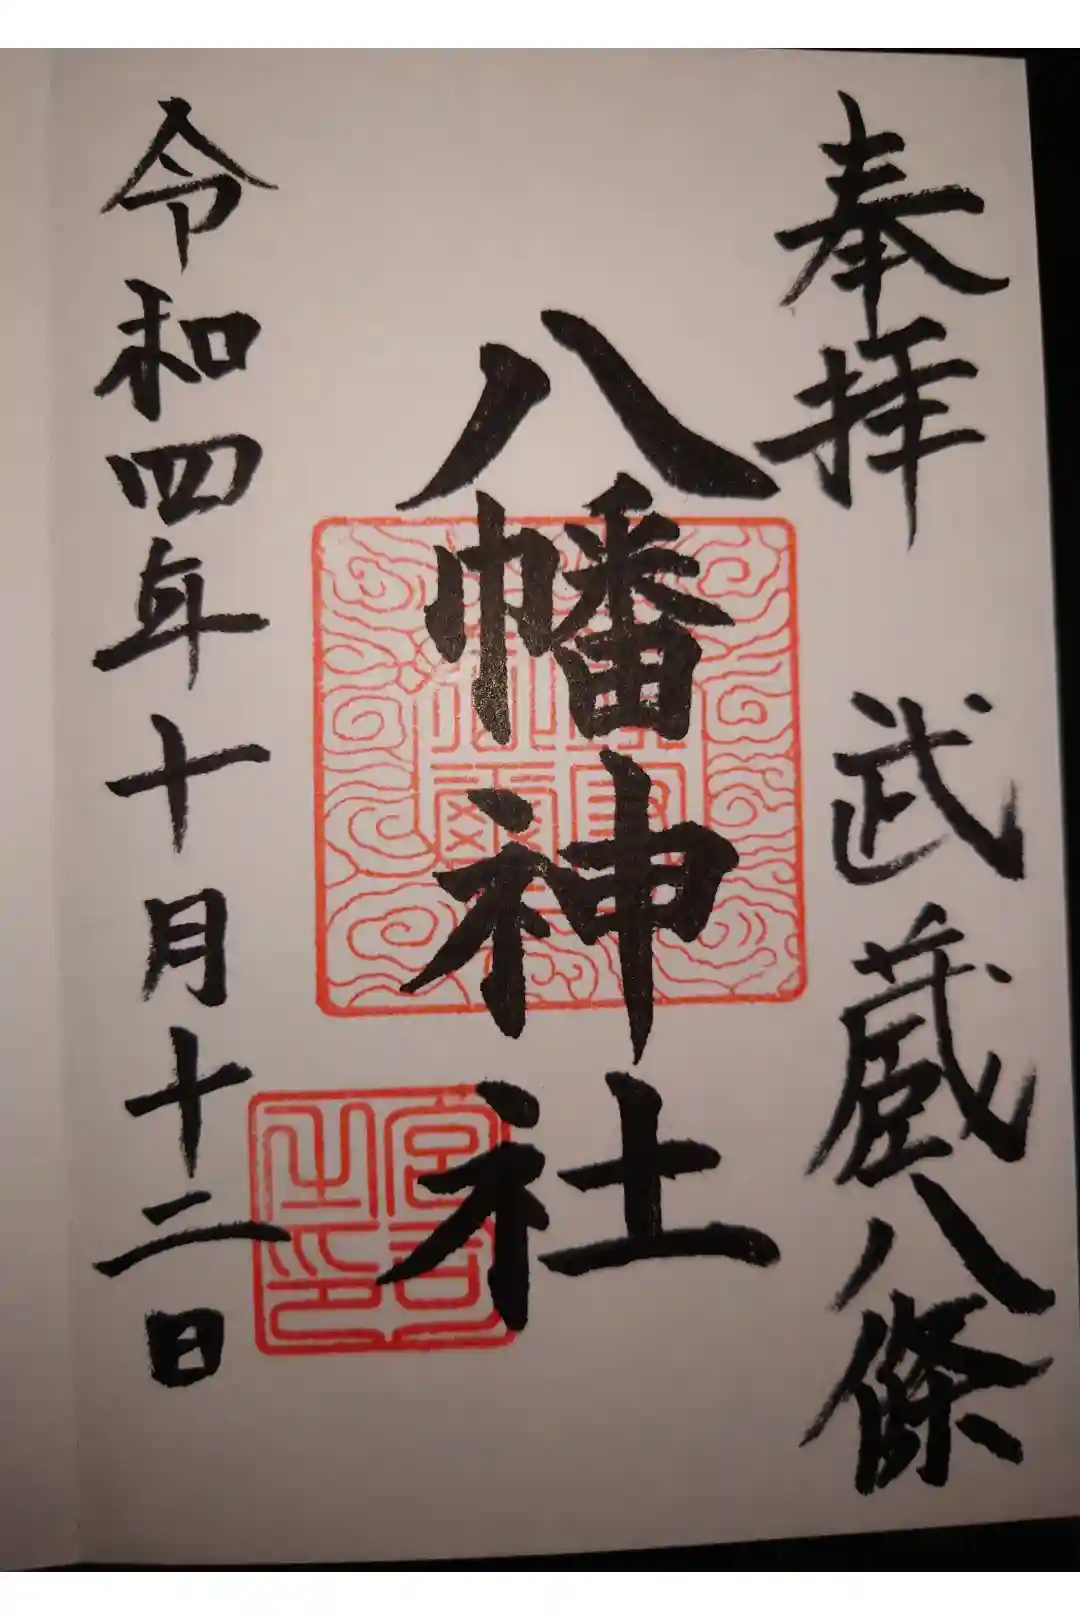 奉拝 武蔵八條
八幡神社
令和四年十月十二日
宮司之印